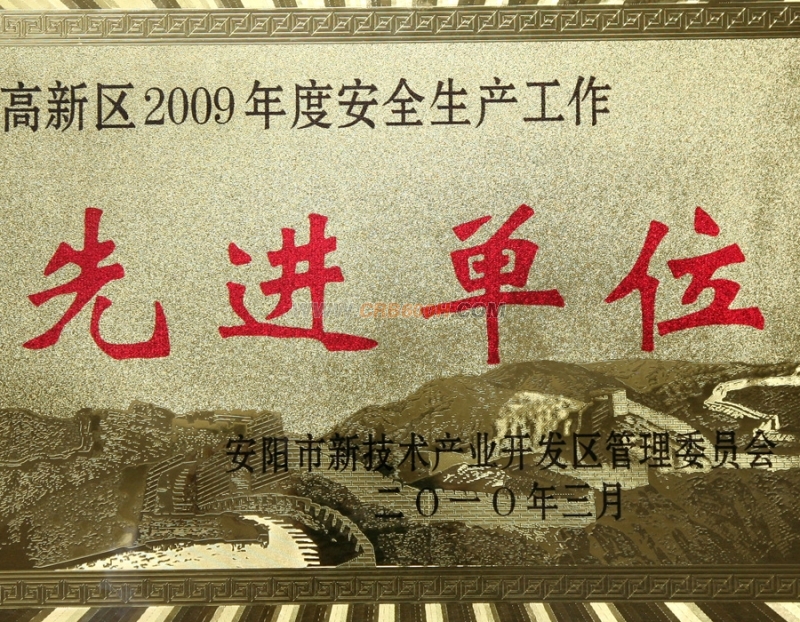 高新区2009年度安全生产工作
先进单位
安阳市新技术产业开发区管理委员会
二〇一〇年三月